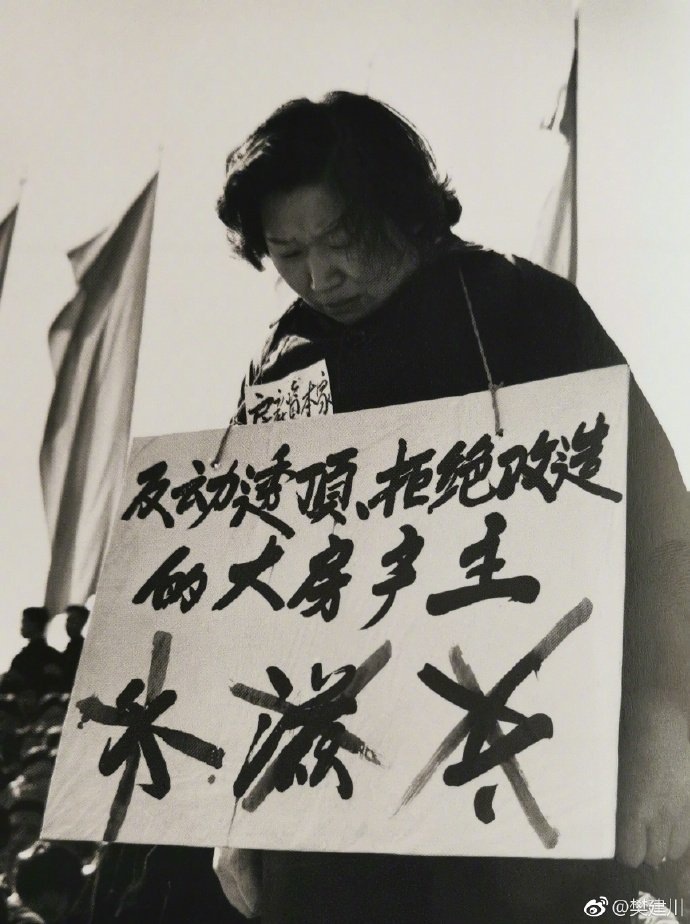 资本家
反动透頂、拒绝改造
的大房产主
滋
@樊建川